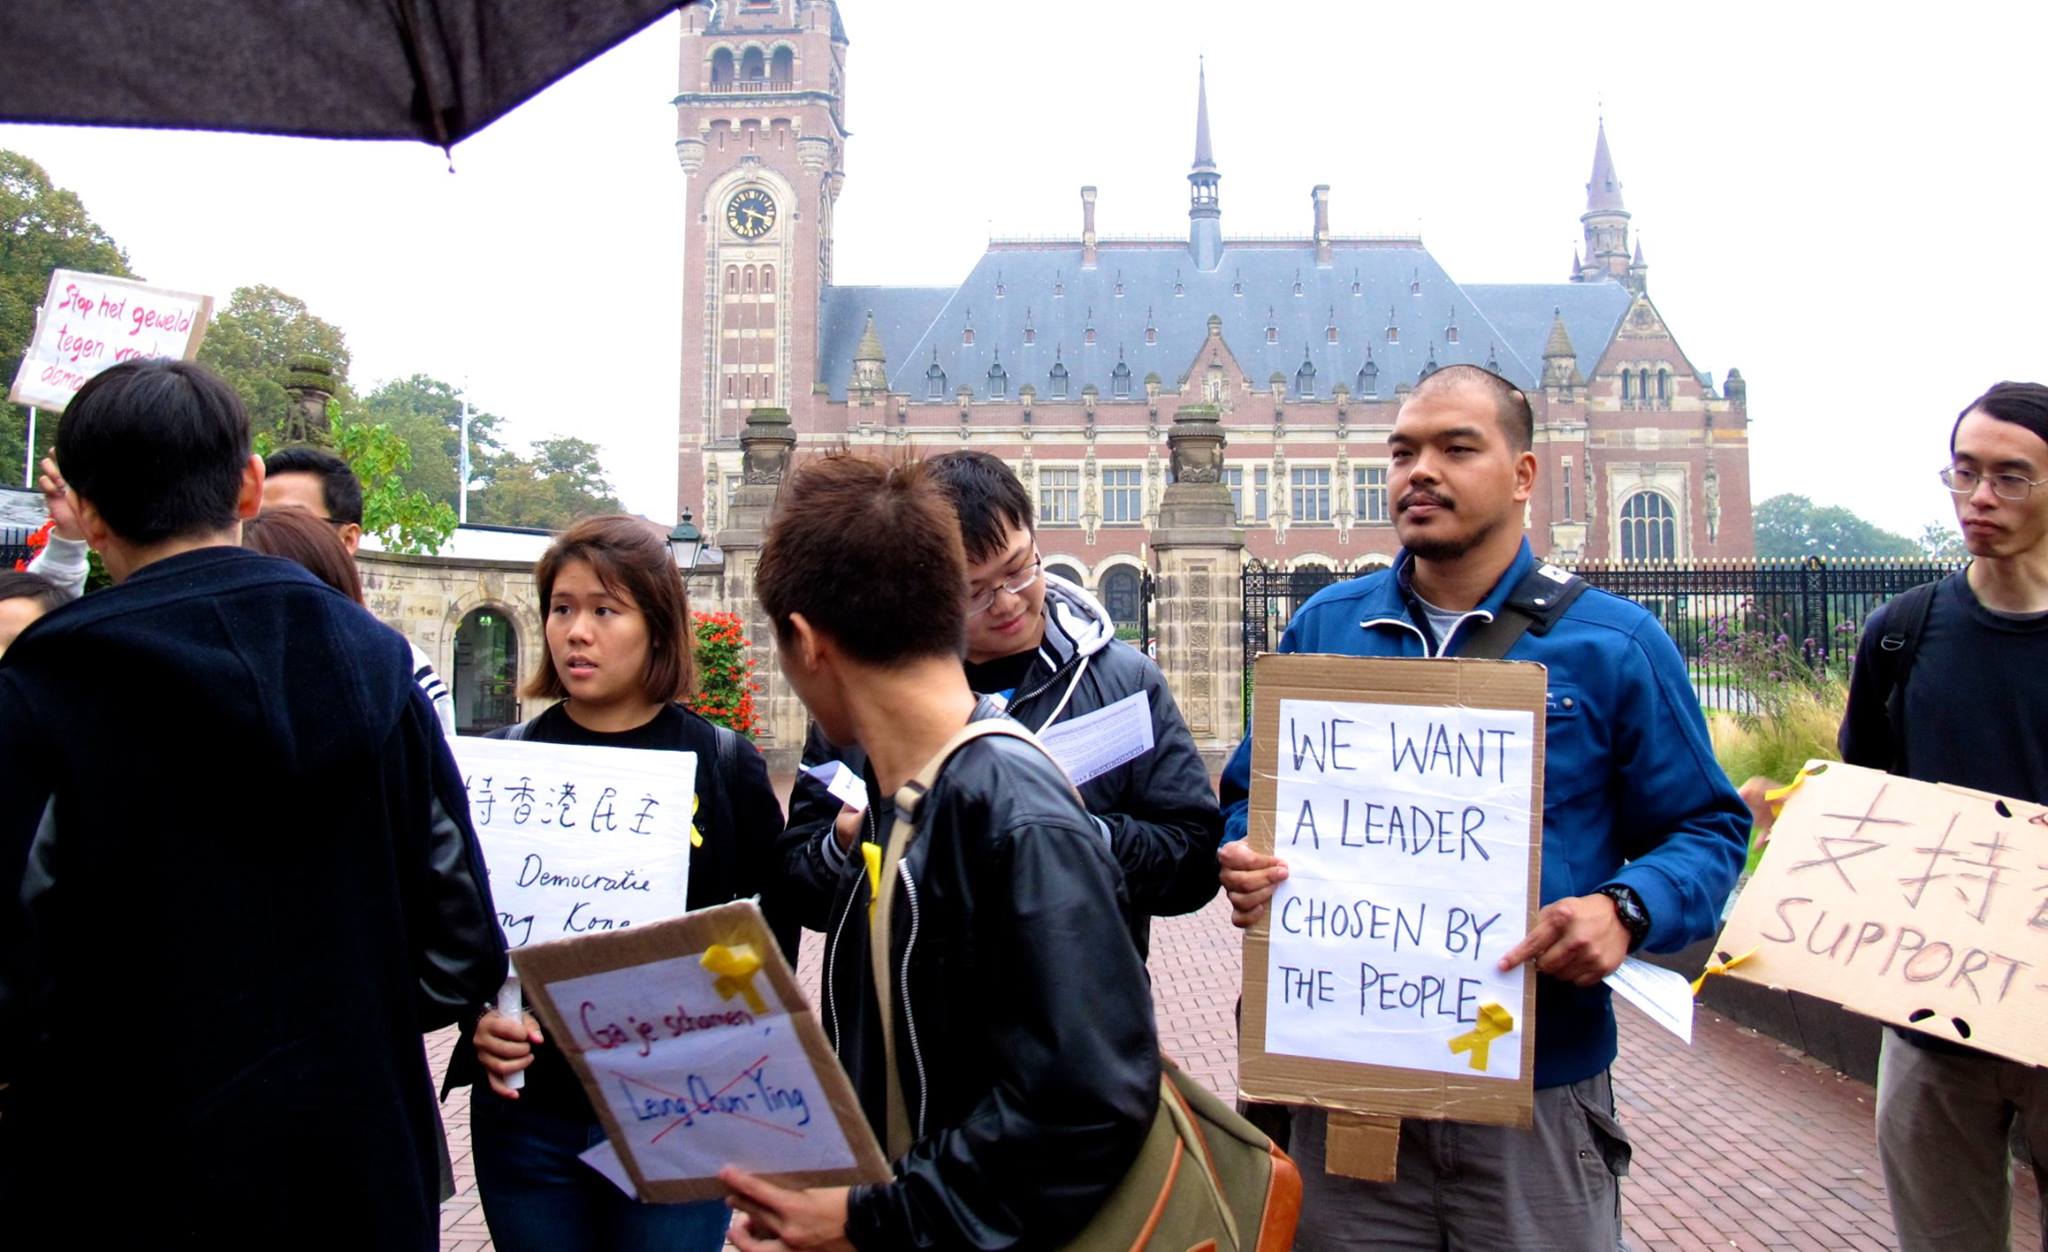 Stop het geweld
tegen
持香港民主
Democratie
Kong
Ga je schamen,
Leung Chun-Ying
WE WANT
A LEADER
CHOSEN BY
THE PEOPLE
支持
SUPPORT